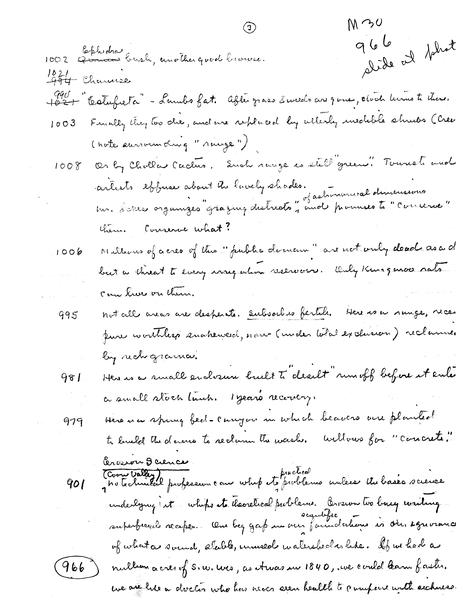 3
M30
966
slide at phot
Ephedra
1002 bush, another good browse.
1021
994 Chamise
990
1021 "Estafieta" - Lambs fat. After grass & weeds are gone, stock turns to these.
1003 Finally they too die, and are replaced by utterly inedible shrubs (Creo
(note surrounding "range")
1008 Or by Cholla Cactus. Such range is still "green." Tourists and
artists effuse about the lovely shades.
of astronomical dimensions
Mr. Ickes organizes "grazing districts" and promises to "conserve"
them. Conserve what?
1006 Millions of acres of this "public domain" are not only dead as a d
but a threat to every irrigation reservoir. Only Kangaroo rats
can live on them.
995 Not all areas are desperate. Subsoil is fertile. Here is a range, rece
pure worthless snakeweed, now (under total exclusion) reclaime
by rich grama.
981 Here is a small enclosure built to "desilt" runoff before it ente
a small stock tank. 1 year's recovery.
979 Here is a spring fed-canyon in which beavers are planted
to build the dams to reclaim the wash. Willows for "concrete."
Erosion Science
(Coon Valley)
practical
901 No technical profession can whip its problems unless the basic science
underlying it whips its theoretical problems. Erosion too busy writing
scientific
superficial recipes. One big gap in our foundations is our ignorance
of what a sound, stable, unused watershed is like. If we had a
966 million acres of S.W. Wis. as it was in 1840, we could learn faster.
We are like a doctor who has never seen health to compare with sickness.